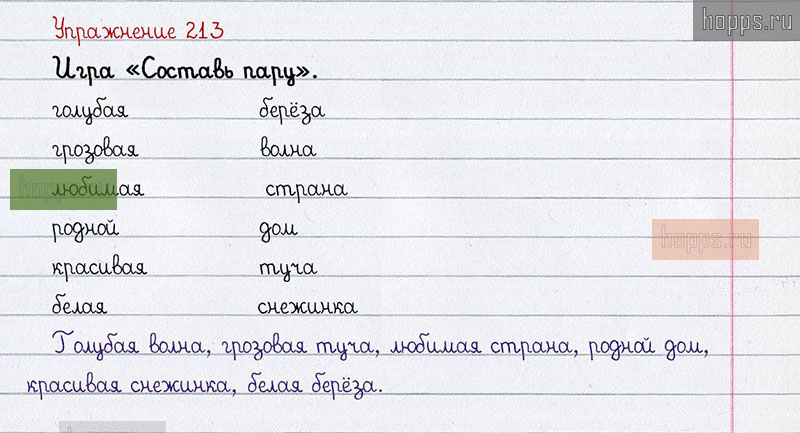 hopps.ru
Упражнение 213
Игра «Составь пару».
голубая берёза
грозовая волна
любимая страна
родной дом
hopps.ru
красивая туча
белая снежинка
Голубая волна, грозовая туча, любимая страна, родной дом,
красивая снежинка, белая берёза.